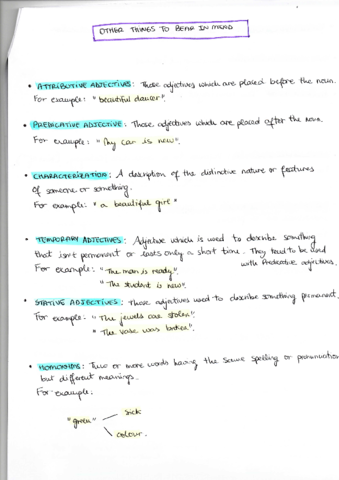 OTHER THINGS TO BEAR IN MIND
• ATTRIBUTIVE ADJECTIVES: Those adjectives which are placed before the noun.
For example: "beautiful dancer".
• PREDICATIVE ADJECTIVE: Those adjectives which are placed after the noun.
For example: "My car is new".
• CHARACTERIZATION: A description of the distinctive nature or features
of someone or something.
For example: "a beautiful girl"
• TEMPORARY ADJECTIVES: Adjective which is used to describe something
that isn't permanent or lasts only a short time. They tend to be used
with Predicative adjectives.
For example: "The man is ready".
"The student is new".
• STATIVE ADJECTIVES: Those adjectives used to describe something permanent.
For example: "The jewels are stolen"
"The vase was broken".
• HOMONYMS: Two or more words having the same spelling or pronunciation
but different meanings.
For example:
"green"
sick
colour.